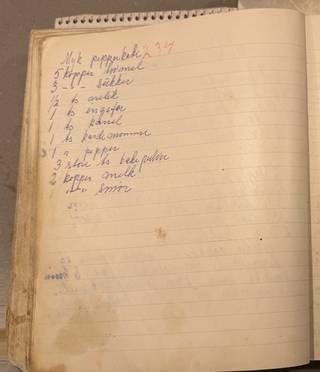 Myk pepperkake 234
5 kopper hvmel
3 -„- sukker
1/2 ts nelik
1 ts ingefær
1 ts kanel
1 ts kardemomme
1 „ pepper
3 store ts bakepulver
2 kopper melk
1 -„- smør